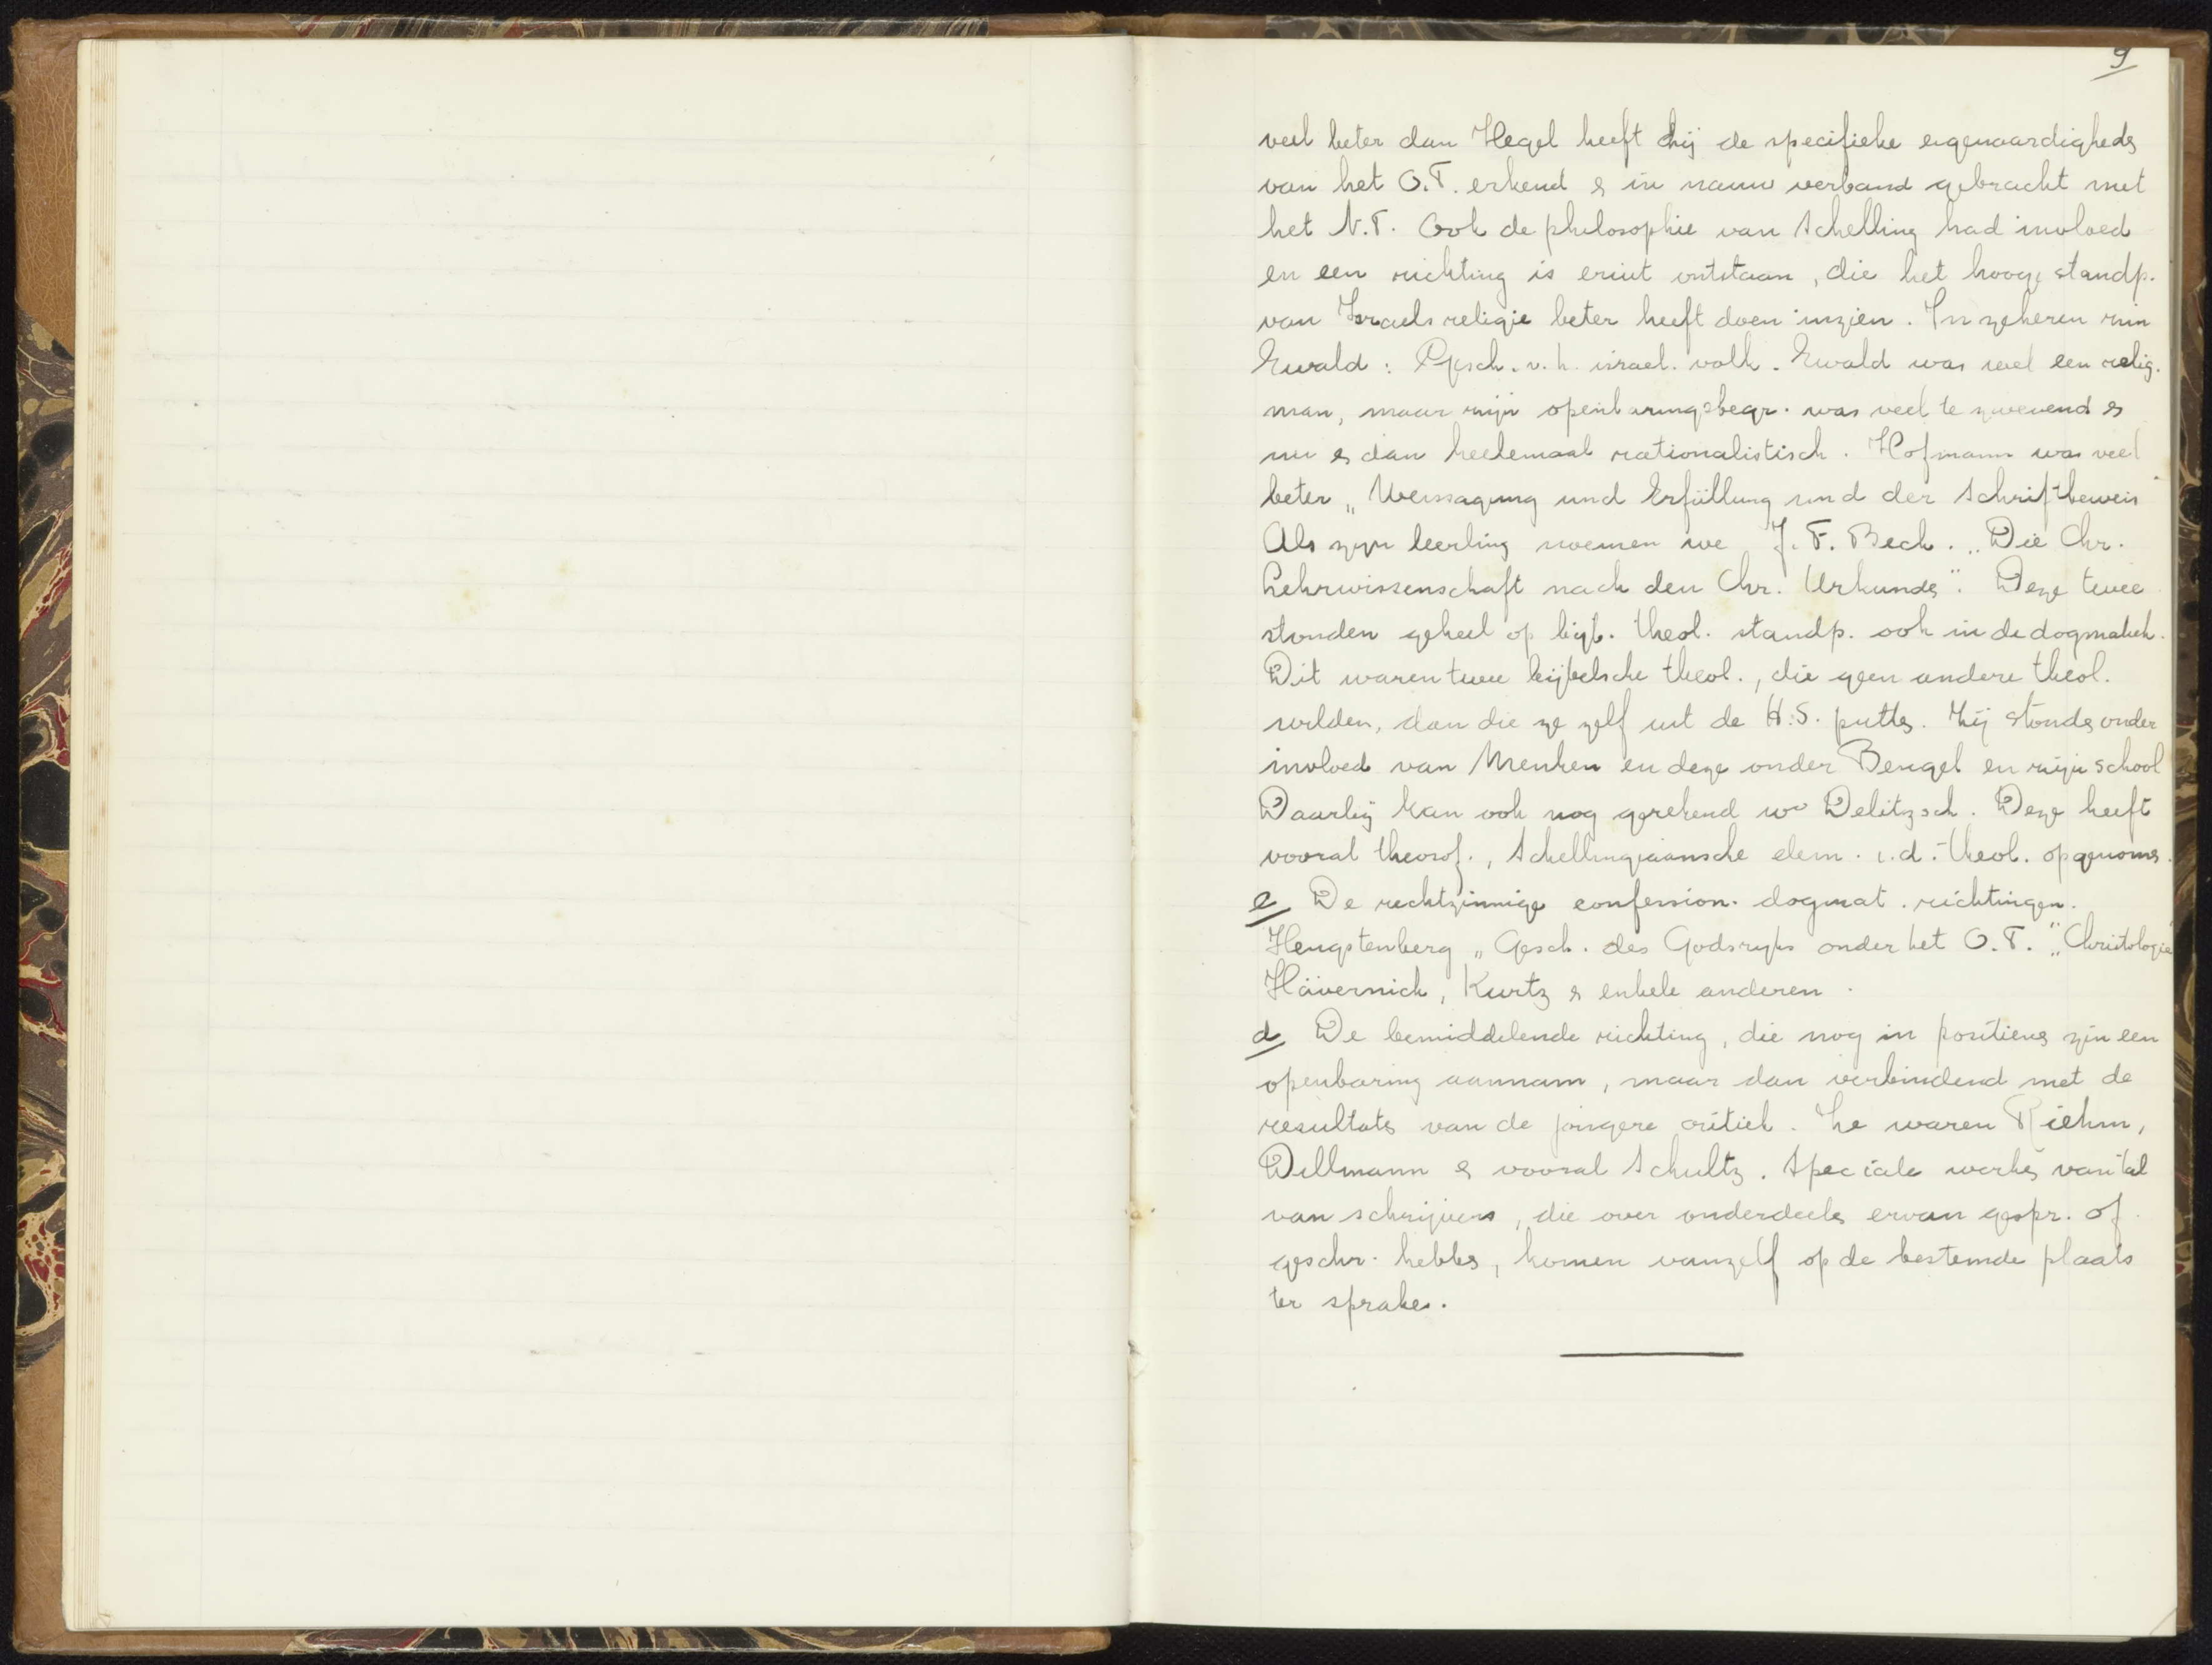 9
veel beter dan Hegel heeft hij de specifieke eigenaardigheds
van het O.T. erkend & in nauw verband gebracht met
het N.T. Ook de philosophie van Schelling had invloed
en een richting is eruit ontstaan, die het hooge standp.
van Israels religie beter heeft doen inzien. In zekeren zin
Ewald: Gesch. v. h. israel. volk. Ewald was wel een relig.
man, maar zijn openbaringsbegr. was veel te zwevend &
nu & dan heelemaal rationalistisch. Hofmann was veel
beter „Weissagung und Erfüllung und der Schriftbeweis"
Als zijn leerling noemen we J. T. Beck. „Die Chr.
Lehrwissenschaft nach den Chr. Urkunds". Deze twee
stonden geheel op bijb. theol. standp. ook in de dogmatiek.
Dit waren twee bijbelsche theol., die geen andere theol.
wilden, dan die ze zelf uit de H.S. putts. Zij stonds onder
invloed van Menken en deze onder Bengel en zijn school
Daarbij kan ook nog gerekend wo Delitzsch. Deze heeft
vooral theosof., Schellingiaansche elem. i.d. theol. opgenoms.
c De rechtzinnige confession. dogmat. richtingen.
Hengstenberg „Gesch. des Godsrijks onder het O.T." „Christologie"
Hävernick, Kurtz & enkele anderen.
d De bemiddelende richting, die nog in positievs zin een
openbaring aannam, maar dan verbindend met de
resultats van de jongere critiek. Zo waren Riehm,
Dillmann & vooral Schultz. Speciale werks van tal
van schrijvers, die over onderdeels ervan gespr. of
geschr. hebbs, komen vanzelf op de bestemde plaats
ter sprake.